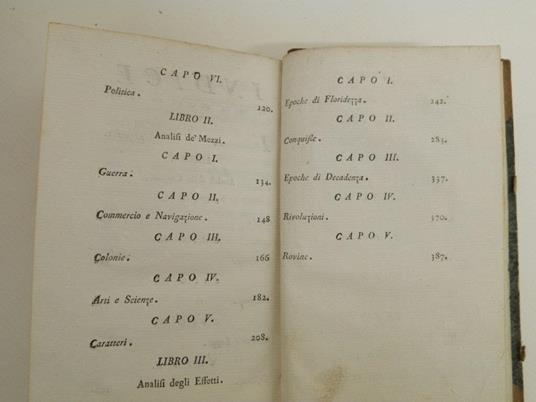 CAPO VI.
Politica.
120.
LIBRO II.
Analiſi de' Mezzi.
CAPO I.
Guerra.
134.
CAPO II.
Commercio e Navigazione. 148
CAPO III.
Colonie. 166
CAPO IV.
Arti e Scienze. 182.
CAPO V.
Caratteri. 208.
LIBRO III.
Analiſi degli Effetti.
CAPO I.
Epoche di Floridezza. 242.
CAPO II.
Conquiſte. 283.
CAPO III.
Epoche di Decadenza. 337.
CAPO IV.
Rivoluzioni. 370.
CAPO V.
Rovine. 387.